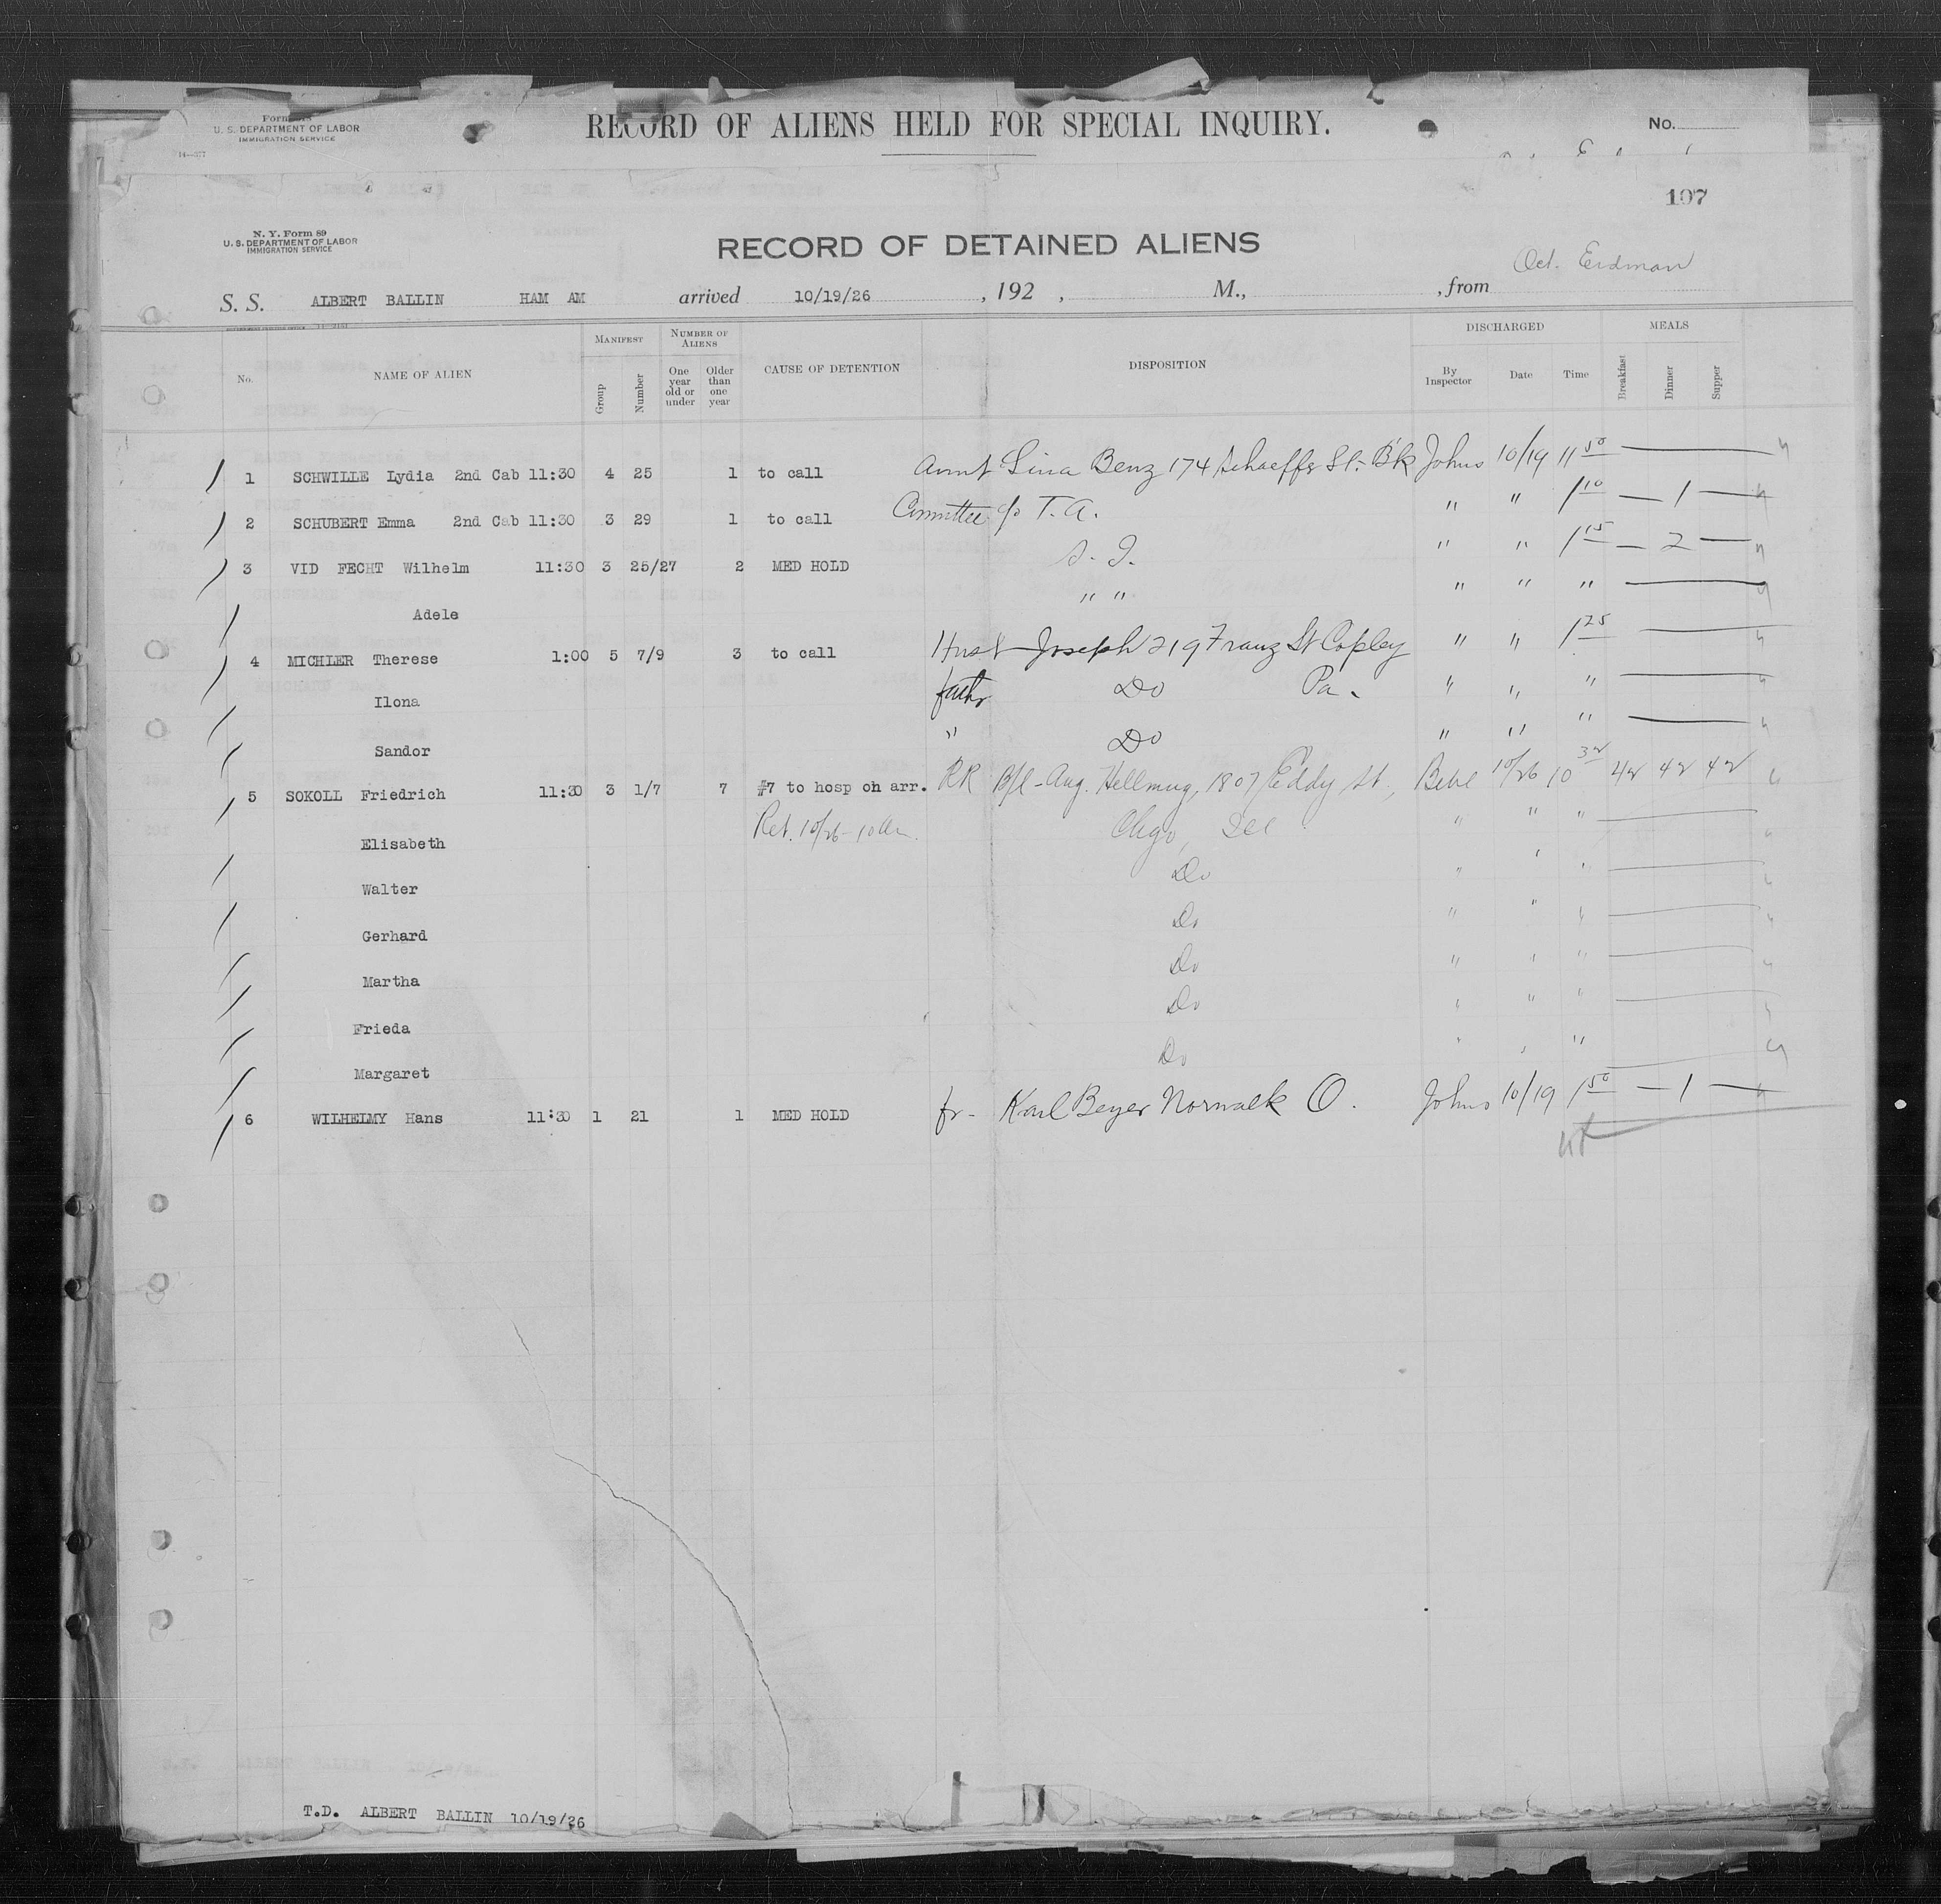 U. S. DEPARTMENT OF LABOR
IMMIGRATION SERVICE
RECORD OF ALIENS HELD FOR SPECIAL INQUIRY.
No.
107
N. Y. Form 89
U. S. DEPARTMENT OF LABOR
IMMIGRATION SERVICE
RECORD OF DETAINED ALIENS
Oct. Erdman
S. S. ALBERT BALLIN HAM AM arrived 10/19/26 , 192 , M., , from
No. NAME OF ALIEN MANIFEST NUMBER OF ALIENS CAUSE OF DETENTION DISPOSITION DISCHARGED MEALS
Group Number One year old or under Older than one year By Inspector Date Time Breakfast Dinner Supper
1 SCHWILLE Lydia 2nd Cab 11:30 4 25 1 to call Aunt Lina Benz 174 Schaeffer St.- Bk Johns 10/19 11 50
2 SCHUBERT Emma 2nd Cab 11:30 3 29 1 to call Committee c/o T. A. " " 1 10 — 1 —
3 VID FECHT Wilhelm 11:30 3 25/27 2 MED HOLD S. I. " " 1 15 — 2 —
Adele " " " " "
4 MICHLER Therese 1:00 5 7/9 3 to call Husb Joseph 219 Franz St Copley " " 1 25
Ilona fathr Do Pa. " " "
Sandor " Do " " "
5 SOKOLL Friedrich 11:30 3 1/7 7 #7 to hosp on arr. RR B/l - Aug. Hellmug, 1807 Eddy St., 10/26 10 30 42 42 42
Elisabeth Ret. 10/26 - 10 am. Chgo, Ill " " "
Walter Do " " "
Gerhard Do " " "
Martha Do " " "
Frieda Do " " "
Margaret Do " " "
6 WILHELMY Hans 11:30 1 21 1 MED HOLD fr- Karl Beyer Norwalk O. Johns 10/19 1 50 — 1 —
T.D. ALBERT BALLIN 10/19/26